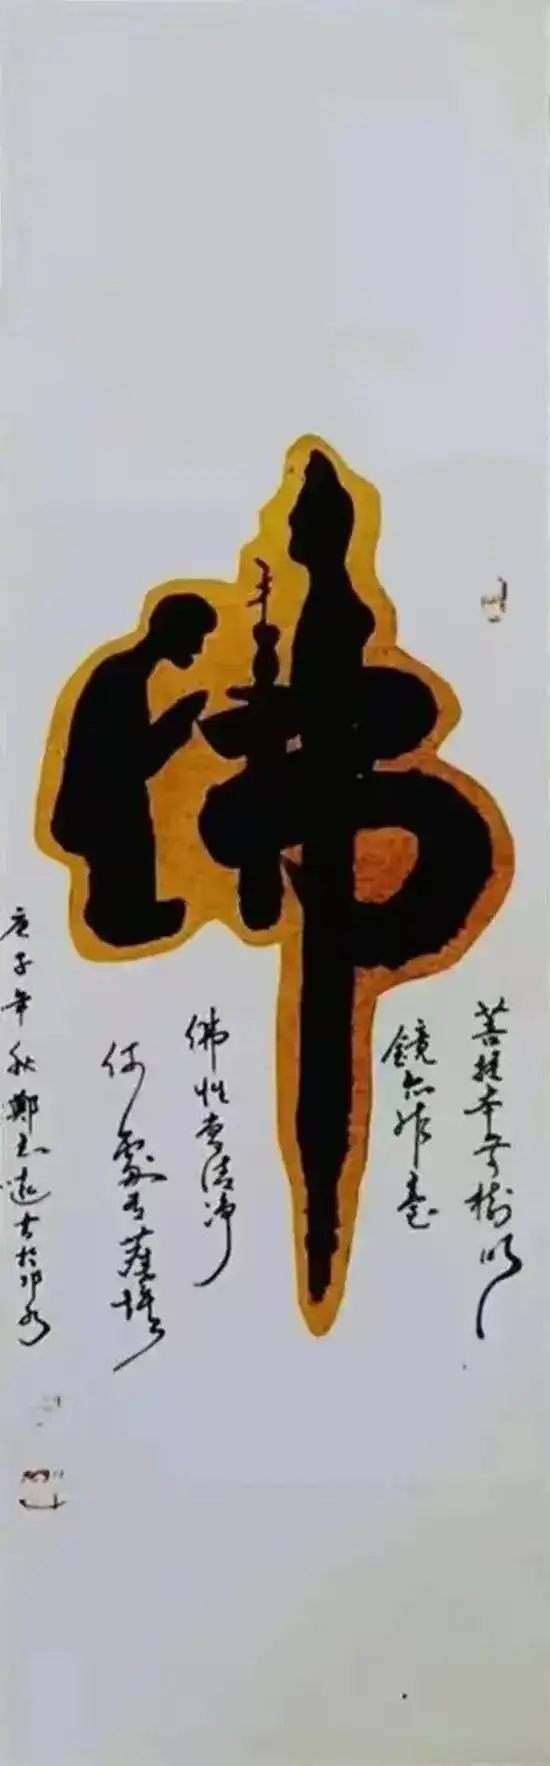 佛
菩提本無樹明
鏡亦非臺
佛性常清净
何處有塵埃
庚子年秋鄭志遠書於邛